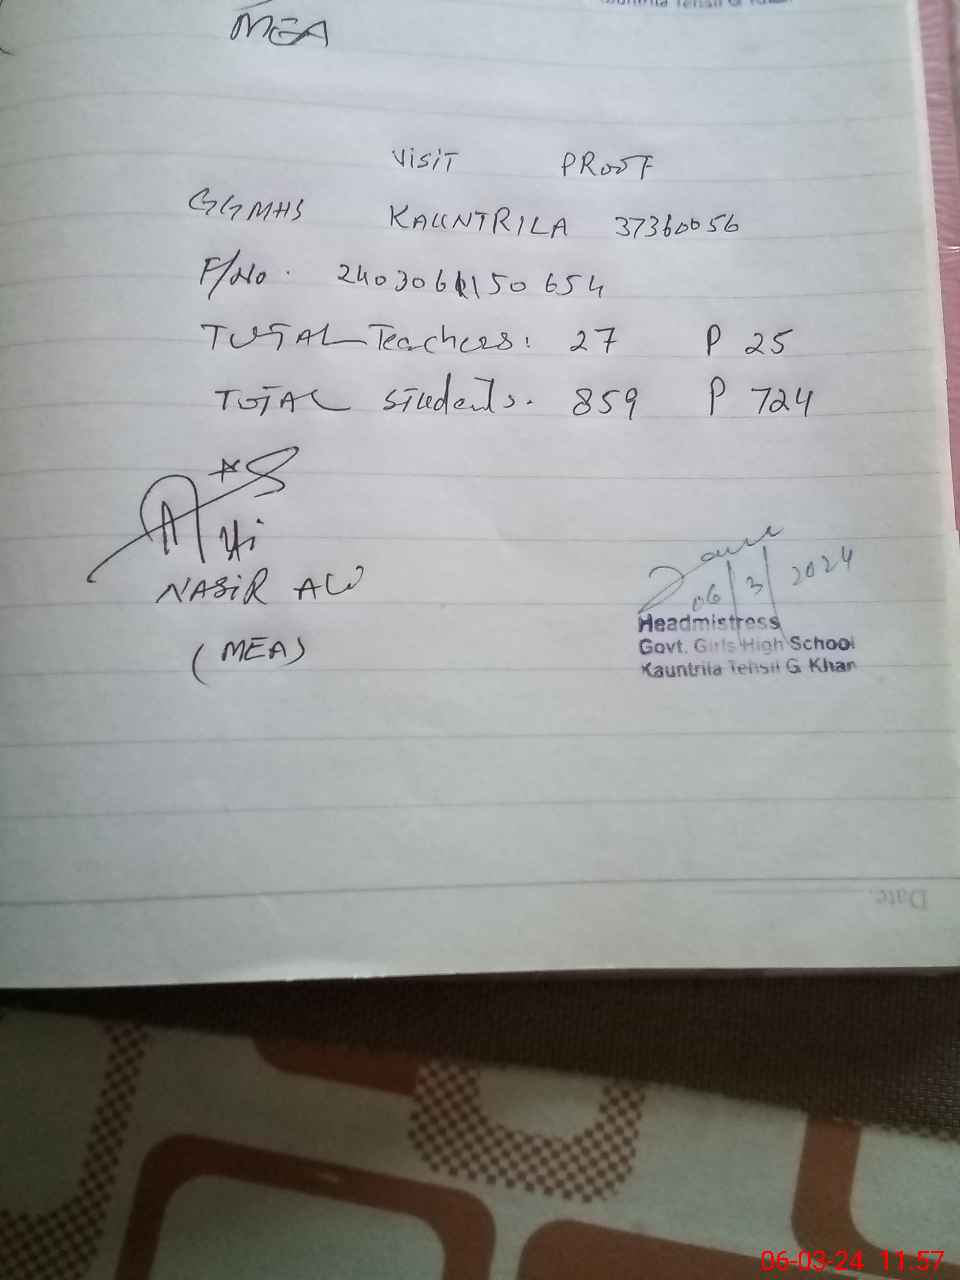 MEA
VISIT PROOF
GGMHS KAUNTRILA 37360056
F/No. 240306150654
TOTAL Teachers: 27 P 25
TOTAL Students. 859 P 724
NASIR ALI
(MEA)
06/3/2024
Headmistress
Govt. Girls High School
Kauntrila Tehsil G. Khan
Date:
06-03-24 11:57